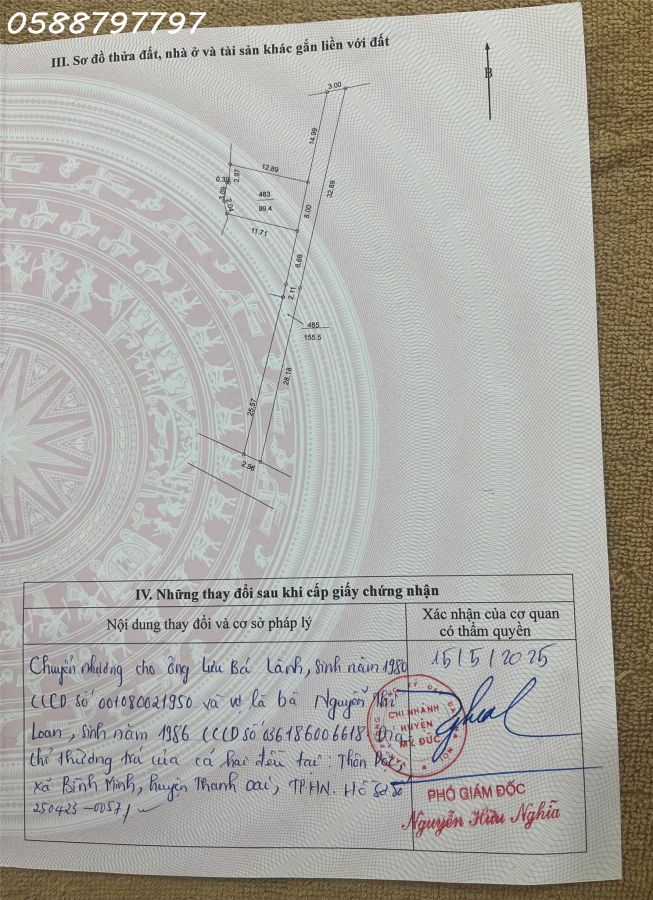 0588797797
III. Sơ đồ thửa đất, nhà ở và tài sản khác gắn liền với đất
B
3.00
14.99
32.89
12.89
0.39
2.97
3.09
2.04
483
99.4
8.00
11.71
8.69
2.11
485
155.5
28.18
25.57
2.96
IV. Những thay đổi sau khi cấp giấy chứng nhận
Nội dung thay đổi và cơ sở pháp lý
Xác nhận của cơ quan
có thẩm quyền
Chuyển nhượng cho ông Lưu Bá Lành, sinh năm 1980
CCCD số 001080021950 và vợ là bà Nguyễn Thị
Loan, sinh năm 1986 CCCD số 036186006618 Địa
chỉ thường trú của cả hai đều tại: Thôn
xã Bình Minh, huyện Thanh Oai, TPHN. Hồ sơ số
250423-0057
15/5/2025
CHI NHÁNH
HUYỆN
MỸ ĐỨC
PHÓ GIÁM ĐỐC
Nguyễn Hữu Nghĩa